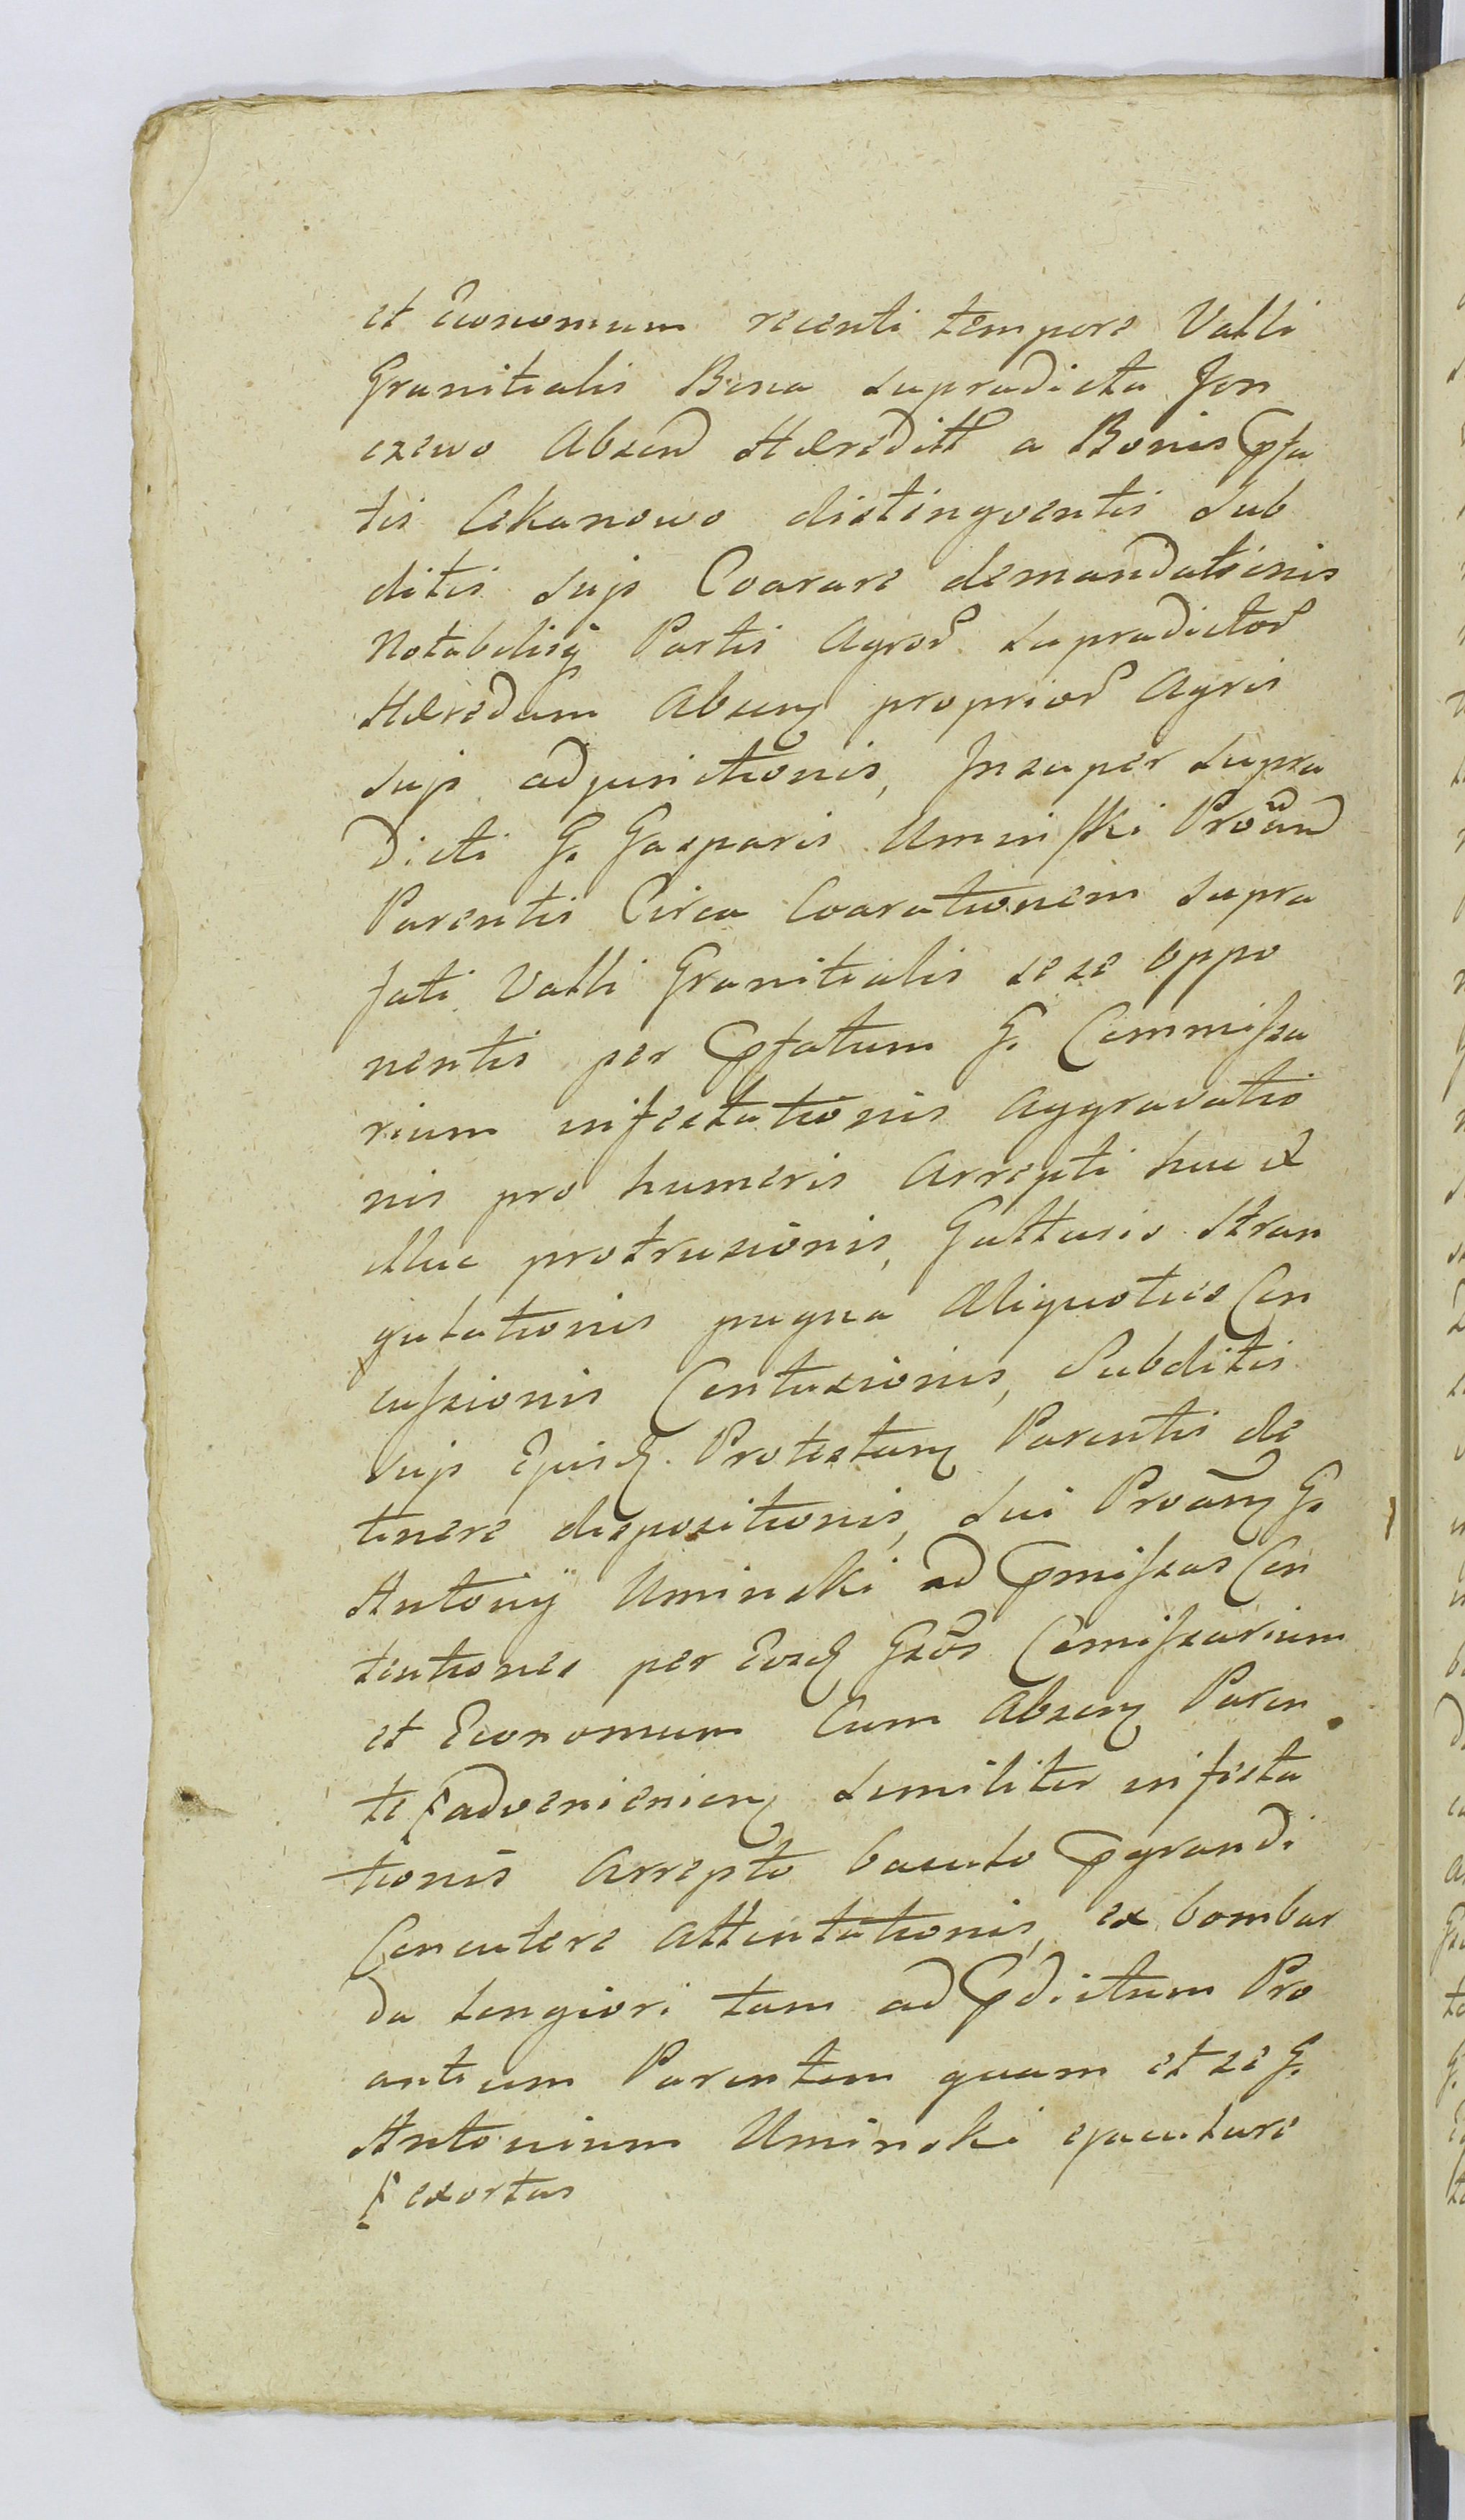 et Economum recenti tempore Valli
Granitialis Bona supradicta Jon
czewo Absend Hæreditt a Bonis Pfa
tis Cekanowo distingventis Sub
ditis suis Coarare demandationis
Notabilisq Partis Agror supradictor
Hæredum Abseng proprior Agris
suis adjunctionis, Insuper supra
dicti G. Gasparis Uminski Protand
Parentis Circa Coarationem supra
fati Valli Granitialis sese oppo
nentis per Pfatum G. Commissa
rium infestationis Aggravatio
nis pro humeris Arrepti huc et
illuc protrusionis, Gutturis stran
gulationis pugna Aliquoties Con
cussionis Contusionis, Subditis
suis Ejusd. Protestang Parentis de
tinere dispositionis, sui Protang G.
Antonij Uminski ad Pmissas Con
tentiones per Eosd Gsos Comissarium
et Economum Cum Abseng Paren
te advenienieng similiter infesta
tionis Arrepto baculo Pgrandi
Concutere attentationis, ex bombar
da longiori tam ad Pdictum Pro
antium Parentem quam et se G.
Antonium Uminski ejaculare
exortas